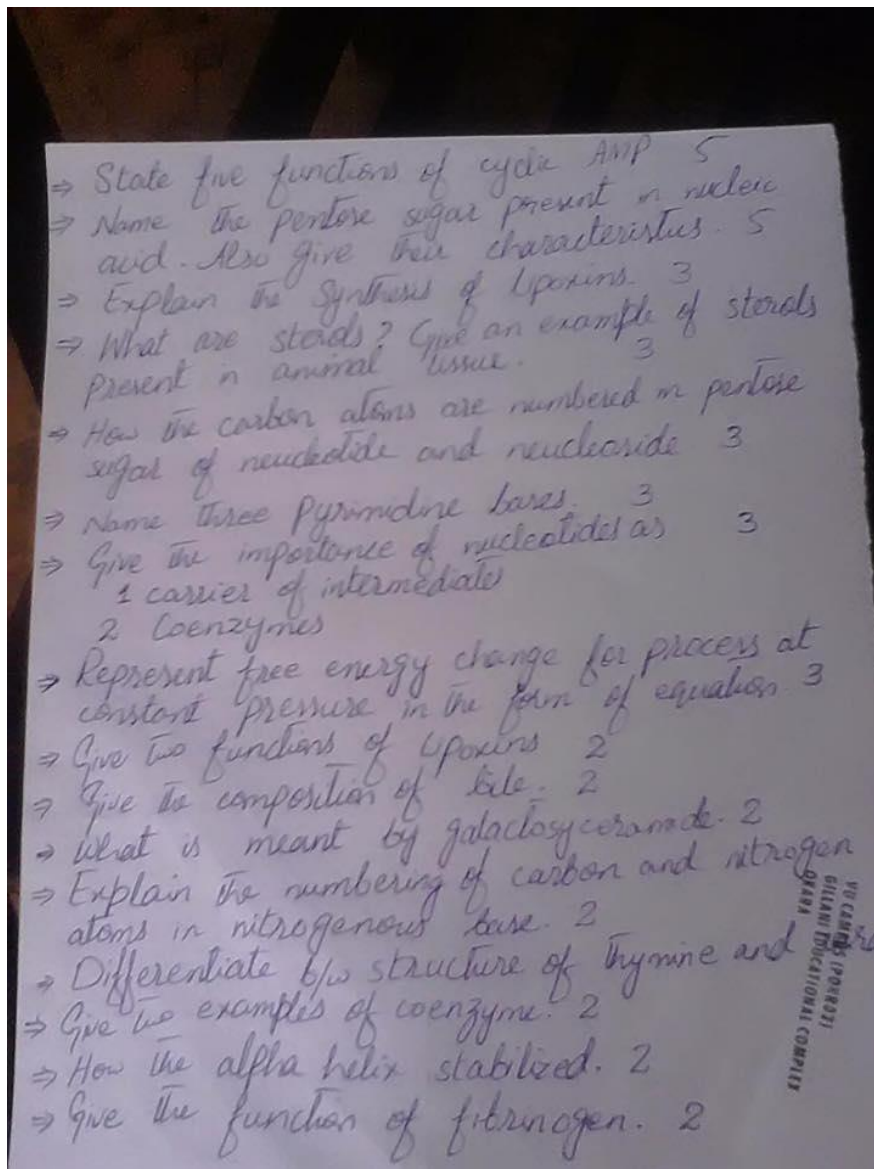 ⇒ State five functions of cyclic AMP 5
⇒ Name the pentose sugar present in nucleic
acid. Also give their characteristics. 5
⇒ Explain the synthesis of lipoxins. 3
⇒ What are sterols? Give an example of sterols
present in animal tissue. 3
⇒ How the carbon atoms are numbered in pentose
sugar of neucleotide and neucleoside 3
⇒ Name three Pyrimidine bases. 3
⇒ Give the importance of nucleotides as 3
1 carrier of intermediates
2 Coenzymes
⇒ Represent free energy change for process at
constant pressure in the form of equation 3
⇒ Give two functions of lipoxins 2
⇒ Give the composition of bile. 2
⇒ What is meant by galactosyceramide. 2
⇒ Explain the numbering of carbon and nitrogen
atoms in nitrogenous base. 2
⇒ Differentiate b/w structure of thymine and
⇒ Give two examples of coenzyme. 2
⇒ How the alpha helix stabilized. 2
⇒ Give the function of fibrinogen. 2
VU CAMPUS
GILLANI EDUCATIONAL COMPLEX
OKARA